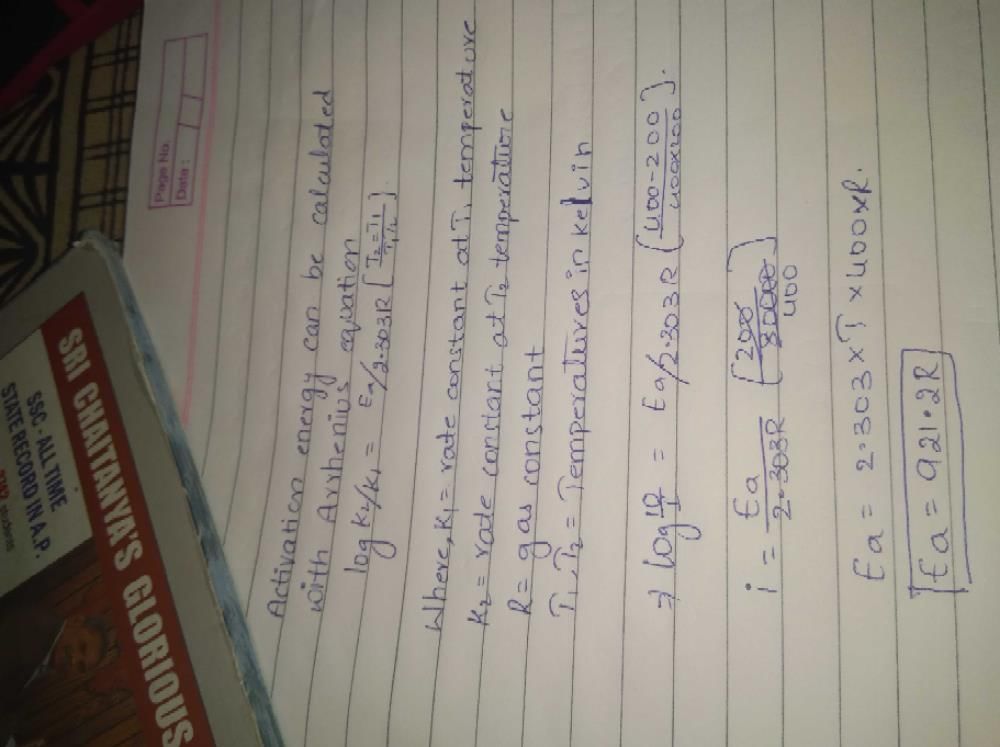 Page No.
Date :
Activation energy can be calculated
with Arrhenius equation
log K₂/K₁ = Ea/2.303R [T₂=T₁/T₁T₂].
Where, K₁= rate constant at T₁ temperature
K₂= rate constant at T₂ temperature
R= gas constant
T₁,T₂= Temperatures in kelvin
⇒ log 10/1 = Ea/2.303R [400-200/400x200].
1 = Ea/2.303R [200/80000] 400
Ea = 2.303 x 1 x 400xR.
Ea = 921.2R
SRI CHAITANYA'S GLORIOUS
SSC - ALL TIME
STATE RECORD IN A.P.